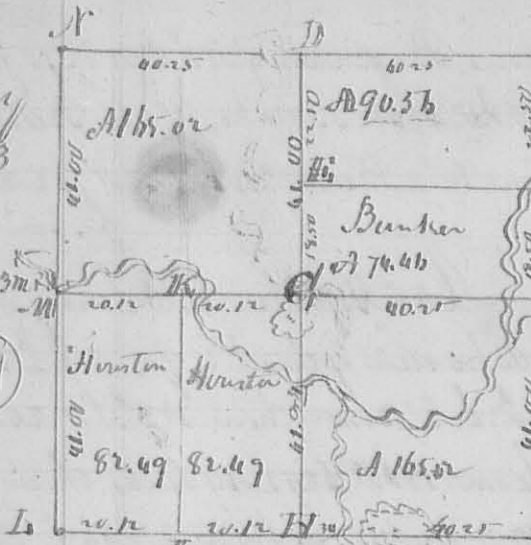 N D
40.25 40.25
A 165.02 A 90.56
41.00 41.00
Bunker
A 74.46
M
20.12 20.12 40.25
Houston Houston
41.00 41.00
82.49 82.49 A 165.02
L H
20.12 20.12 40.25